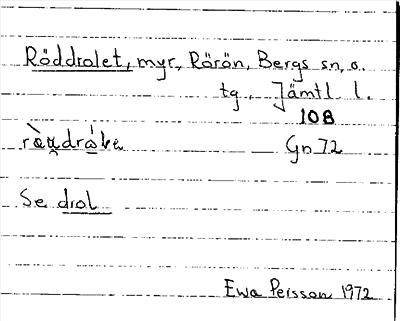 Röddrolet, myr, Rörön, Bergs sn, o.
tg, Jämtl l.
108
Gn 72
Se drol
Ewa Persson 1972